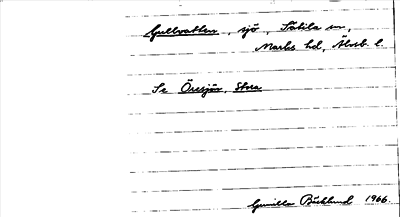 Gullvatten, sjö, Sätila sn,
Marks hd, Älvsb. l.
Se Öresjön, Stora
Gunilla Bäcklund 1966.